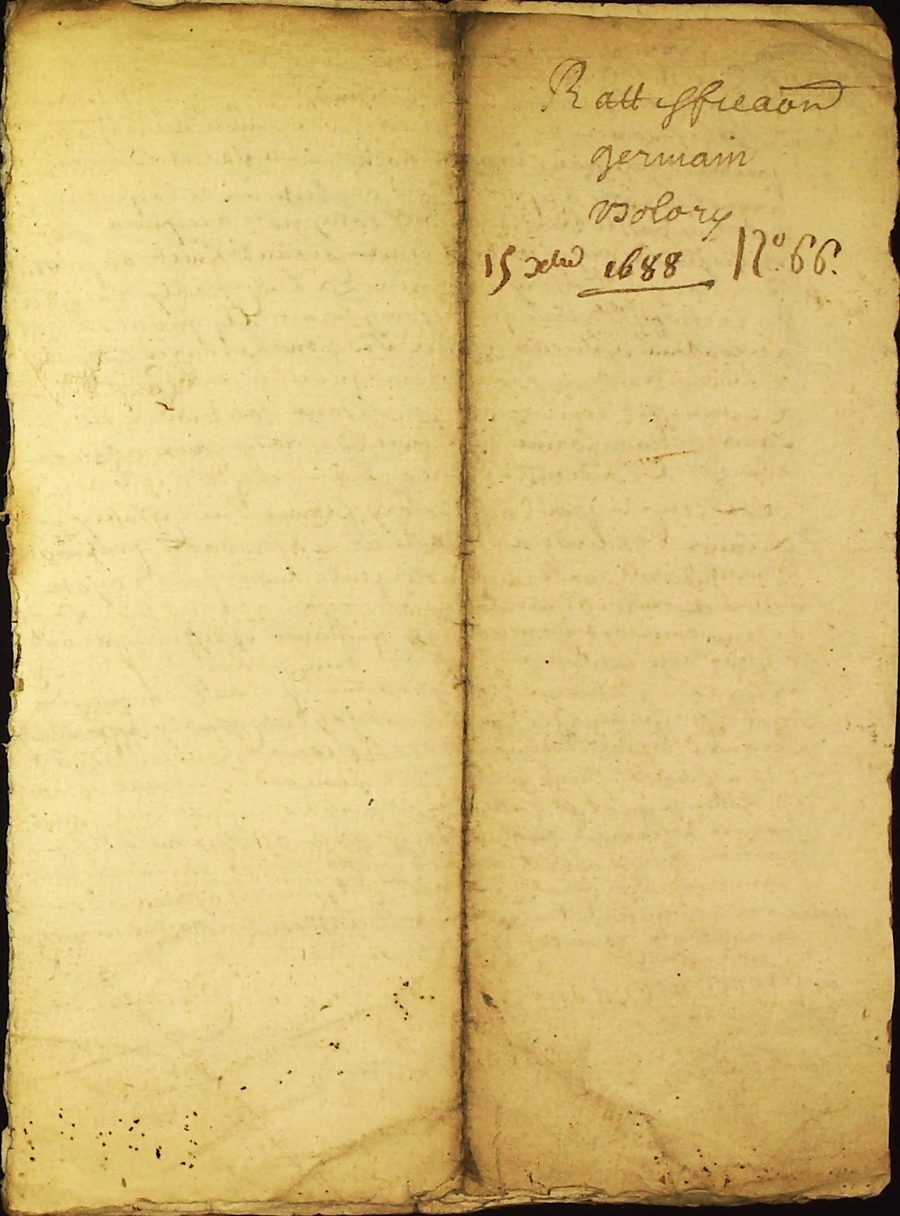 Rattiffication
germain
Volory
15 xbre 1688 N.º 66.